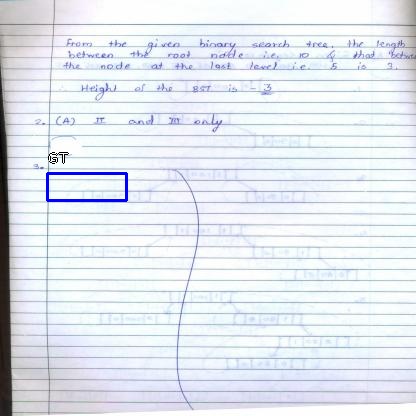 From the given binary search tree, the length
between the root node i.e. 10 & that between
the node at the last level i.e. 5 is 3.
∴ Height of the BST is - 3
2. (A) II and III only
GT
3.